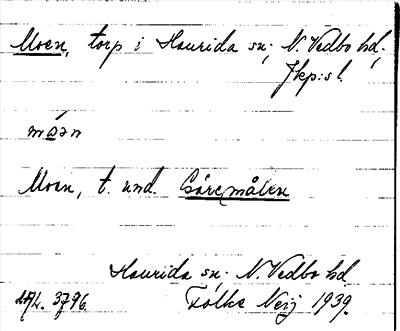 Moen, torp i Haurida sn; N. Vedbo hd,
Jkp:s l.
móən
Moen, t. und. Båremålen
Haurida sn. N. Vedbo hd.
3796. Folke Neij 1939.